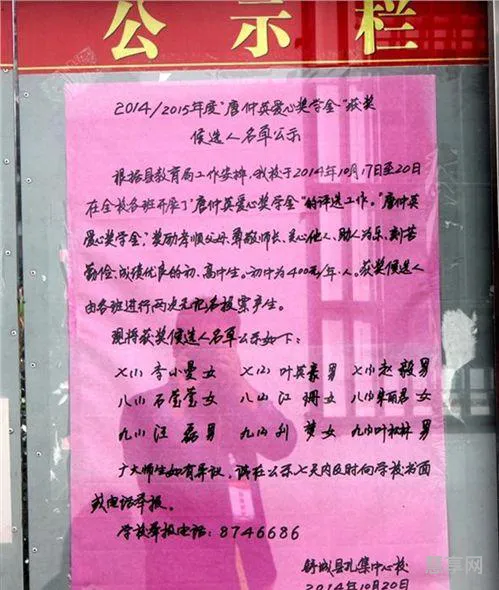 公示栏
2014/2015年度"唐仲英爱心奖学金"获奖
候选人名单公示
根据县教育局工作安排,我校于2014年10月17日至20日
在全校各班开展了"唐仲英爱心奖学金"的评选工作。"唐仲英
爱心奖学金"奖励孝顺父母、尊敬师长、关心他人、助人为乐、刻苦
勤俭、成绩优良的初、高中生。初中为400元/年.人。获奖候选人
由各班进行两次无记名投票产生。
现将获奖候选人名单公示如下:
七(1) 李小曼 女 七(2) 叶英豪 男 七(3) 赵毅 男
八(1) 石莹莹 女 八(2) 江珊 女 八(3) 朱丽君 女
九(1) 汪磊 男 九(2) 刘梦 女 九(3) 叶松林 男
广大师生如有异议,请在公示七天内及时向学校书面
或电话举报。
学校举报电话:8746686
舒城县孔集中心校
2014年10月20日